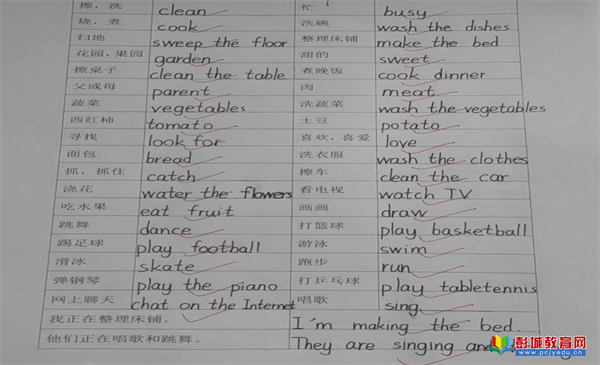 擦，洗 clean 忙 busy
烧，煮 cook 洗碗 wash the dishes
扫地 sweep the floor 整理床铺 make the bed
花园，果园 garden 甜的 sweet
擦桌子 clean the table 煮晚饭 cook dinner
父或母 parent 肉 meat
蔬菜 vegetables 洗蔬菜 wash the vegetables
西红柿 tomato 土豆 potato
寻找 look for 喜欢，喜爱 love
面包 bread 洗衣服 wash the clothes
抓，抓住 catch 擦车 clean the car
浇花 water the flowers 看电视 watch TV
吃水果 eat fruit 画画 draw
跳舞 dance 打篮球 play basketball
踢足球 play football 游泳 swim
滑冰 skate 跑步 run
弹钢琴 play the piano 打乒乓球 play tabletennis
网上聊天 chat on the Internet 唱歌 sing
我正在整理床铺。 I'm making the bed.
他们正在唱歌和跳舞。 They are singing and
彭城教育网
www.pcjyedu.cn